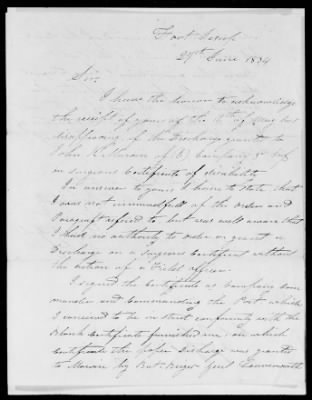 Fort Jesup
27th June 1834
Sir,
I have the honor to acknowledge
the receipt of yours of the 16th of May last
disapproving of the Discharge granted to
John R. Moran of (B) Company 3d Inf.
on Surgeons Certificate of disability.
In answer to yours I have to state that
I was not unmindfull of the Order and
Paragraft refered to but was well aware that
I had no authority to order or grant a
Discharge on a Surgeons Certificate without
the action of a Field officer.
I signed the Certificate as Company Com
mander and Commanding the Post which
I conceived to be in strict conformity with the
Blank Certificate furnished me, on which
Certificate the paper Discharge was granted
to Moran by Bvt. Brigr Genl Leavenworth